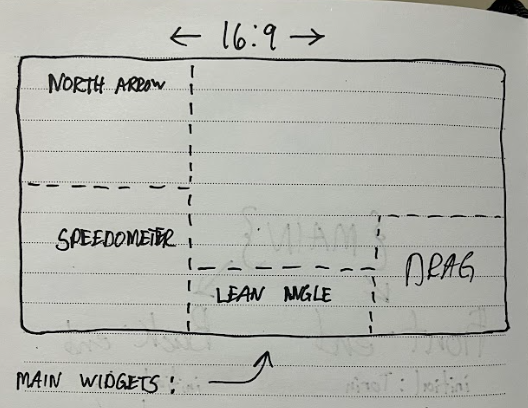 ← 16:9 →
NORTH ARROW
SPEEDOMETER
DRAG
LEAN ANGLE
MAIN WIDGETS: